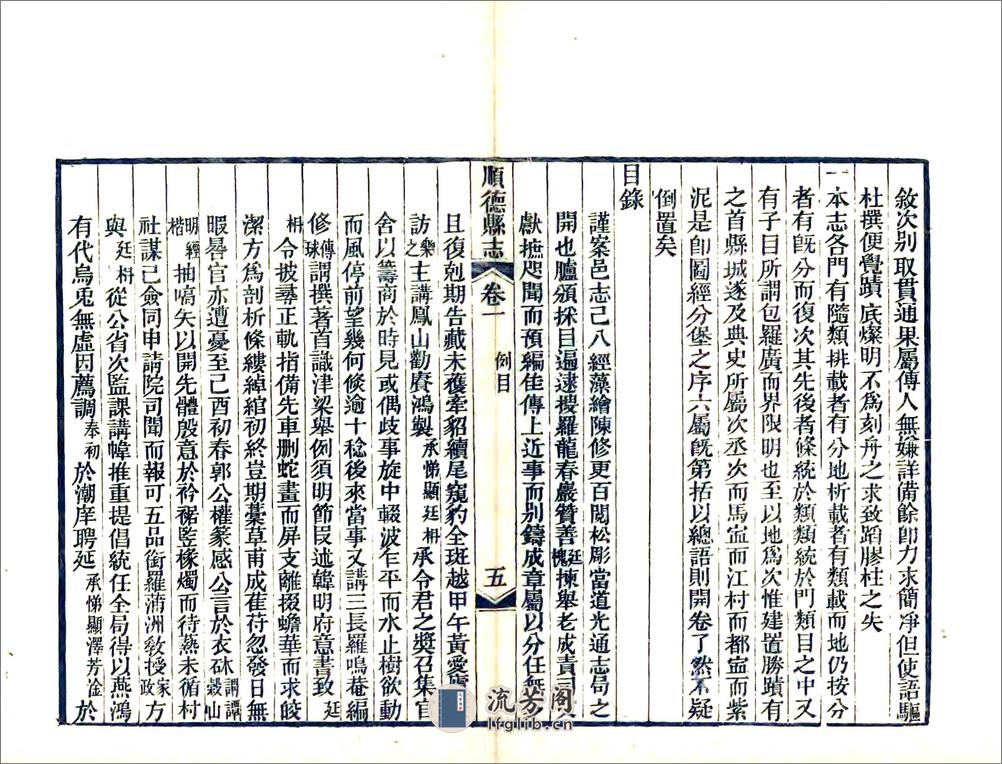 敘次別取貫通果屬傳人無嫌詳備餘卽力求簡凈但使語驅
杜撰便覺蹟底燦明不爲刻舟之求致蹈膠柱之失
一本志各門有隨類排載者有分地析載者有類載而地仍按分
者有旣分而復次其先後者條統於類類統於門類目之中又
有子目所謂包羅廣而界限明也至以地爲次惟建置勝蹟有
之首縣城遂及典史所屬次丞次而馬寧而江村而都寧而紫
泥是卽圖經分堡之序六屬旣第括以總語則開卷了然不疑
倒置矣
目錄
謹案邑志已八經藻繪陳修更百閱松彫當道光通志局之
開也臚頒採目遍逮搜羅龍春巖贊善廷槐揀舉老成責司
獻摭咫聞而預編佳傳上近事而別鑄成章屬以分任無
且復剋期告蕆未獲牽貂續尾窺豹全斑越甲午黃愛廬
訪樂之主講鳳山勸賡鴻製承悌顯廷枏承令君之獎召集官
舍以籌商於時見或偶歧事旋中輟波乍平而水止樹欲動
而風停前望幾何倐逾十稔後來當事又講三長羅鳴菴編
修傳球廷謂撰著首識津梁舉例須明節叚述韓明府意書致
枏令披尋正軌指備先車删蛇畫而屏支離掇蟾華而求皎
潔方爲剖析條縷綽綰初終豈期藁草甫成萑苻忽發日無
暇晷官亦遭憂至己酉初春郭公權篆感公言於衣砅謂譚穀山
明經楷抽嚆矢以開先體殷意於衿裾監椽燭而待爇未循村
社謀已僉同申請院司聞而報可五品銜羅浦洲敎授家政方
與廷枏從公省次監課講幃推重提倡統任全局得以燕鴻
有代烏兎無虛因薦調奉初於潮庠聘延承悌顯澤芳淦於
順德縣志
卷一
例目
五
流芳阁
lfglib.cn